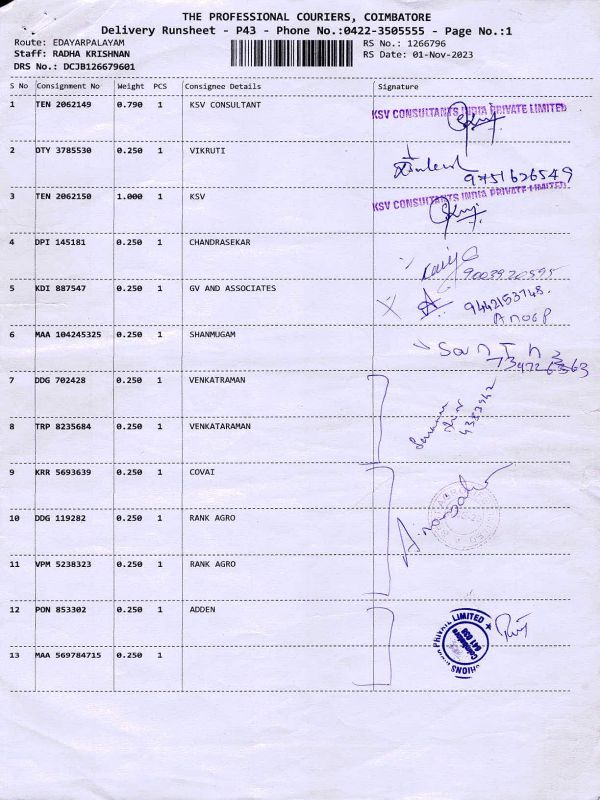 THE PROFESSIONAL COURIERS, COIMBATORE
Delivery Runsheet - P43 - Phone No.:0422-3505555 - Page No.:1
Route: EDAYARPALAYAM
RS No.: 1266796
Staff: RADHA KRISHNAN
RS Date: 01-Nov-2023
DRS No.: DCJB126679601
S No Consignment No Weight PCS Consignee Details Signature
1 TEN 2062149 0.790 1 KSV CONSULTANT
KSV CONSULTANTS INDIA PRIVATE LIMITED
2 DTY 3785530 0.250 1 VIKRUTI
9751626549
3 TEN 2062150 1.000 1 KSV
KSV CONSULTANTS INDIA PRIVATE LIMITED
4 DPI 145181 0.250 1 CHANDRASEKAR
9003920595
5 KDI 887547 0.250 1 GV AND ASSOCIATES
9442153748.
Anoop
6 MAA 104245325 0.250 1 SHANMUGAM
7 DDG 702428 0.250 1 VENKATRAMAN
8 TRP 8235684 0.250 1 VENKATARAMAN
9 KRR 5693639 0.250 1 COVAI
10 DDG 119282 0.250 1 RANK AGRO
11 VPM 5238323 0.250 1 RANK AGRO
12 PON 853302 0.250 1 ADDEN
PRIVATE LIMITED
Coimbatore
641 038
13 MAA 569784715 0.250 1